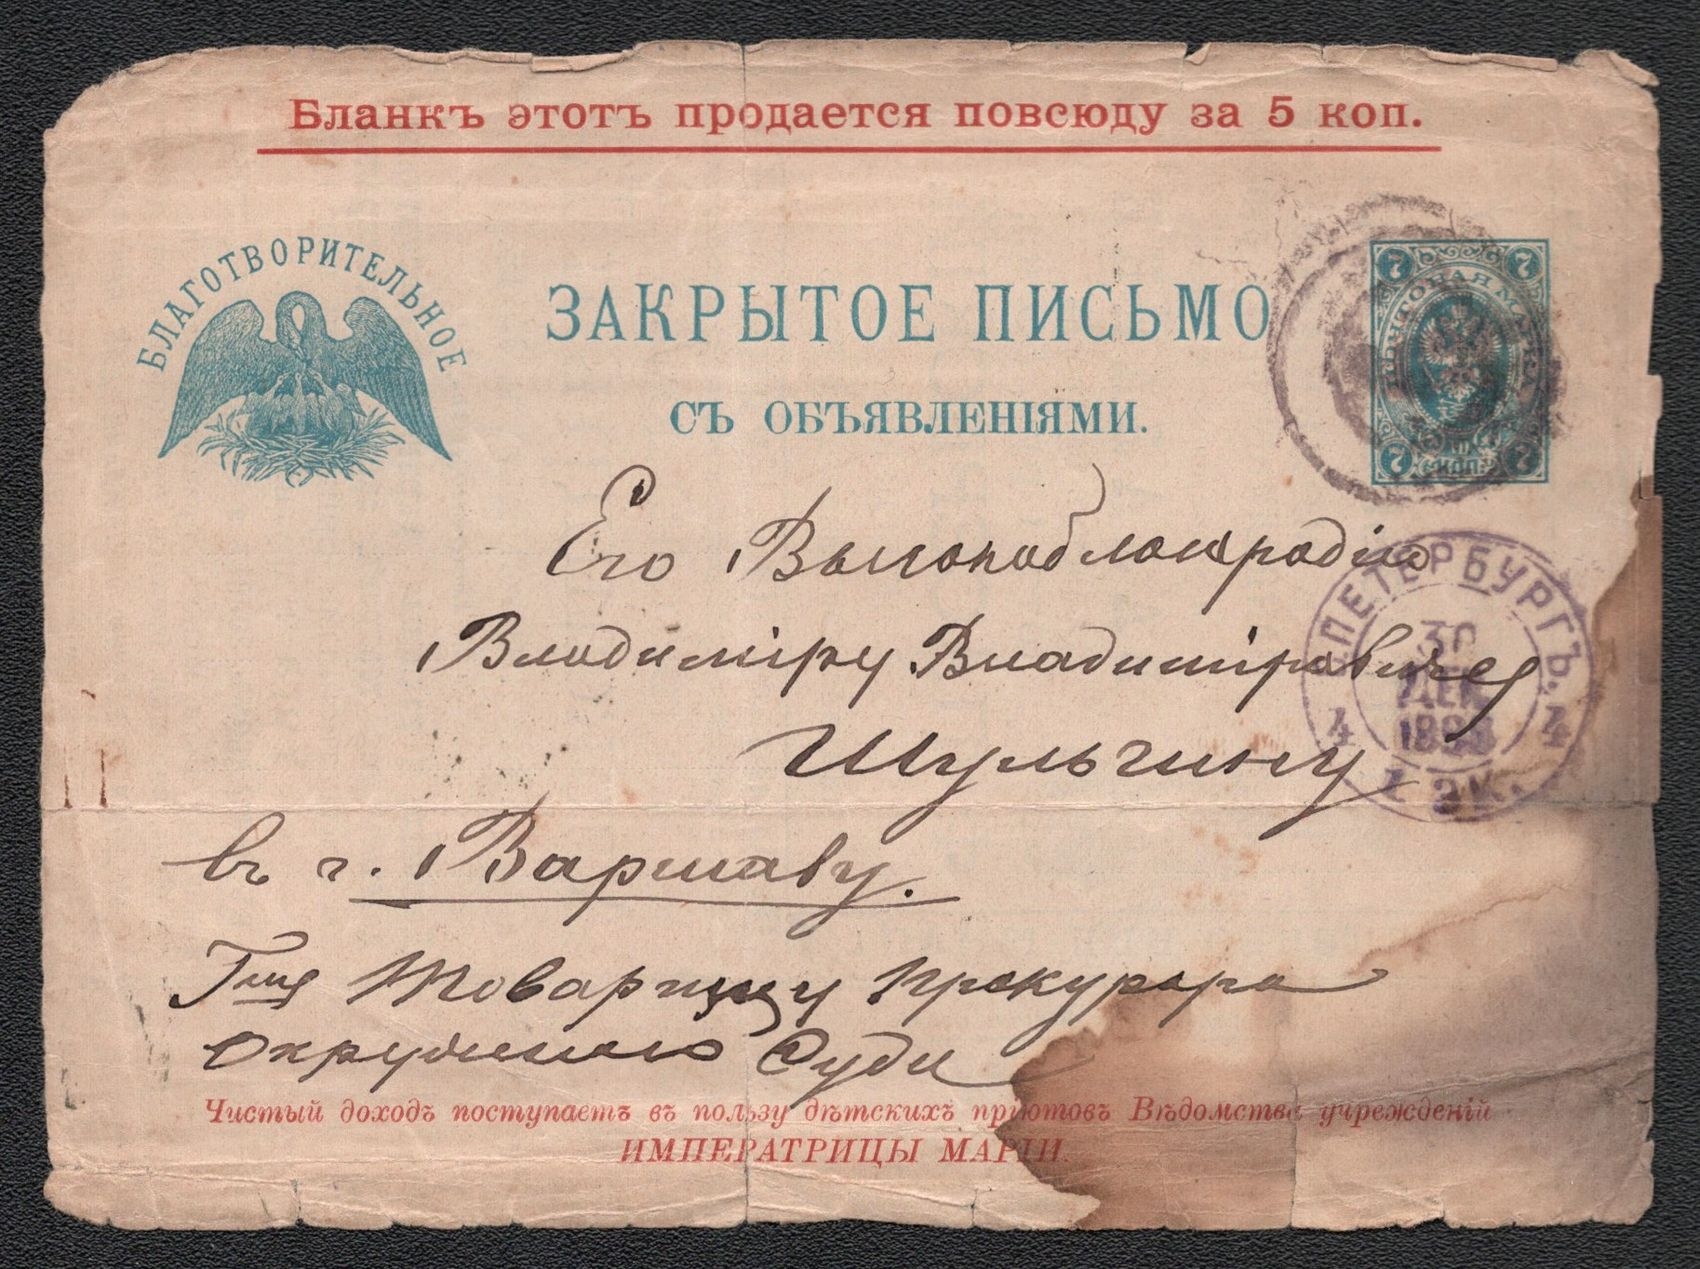 Бланкъ этотъ продается повсюду за 5 коп.
БЛАГОТВОРИТЕЛЬНОЕ
ЗАКРЫТОЕ ПИСЬМО
СЪ ОБЪЯВЛЕНІЯМИ.
7 7
ПОЧТОВАЯ МАРКА
7 КОП. 7
Его Высокоблагородію
Владиміру Владиміровичу
Шульгину
въ г. Варшаву.
Гну Товарищу Прокурора
Окружнаго Суда
С.ПЕТЕРБУРГЪ.
30
ДЕК
4 4
1 ЭК.
Чистый доходъ поступаетъ въ пользу дѣтскихъ пріютовъ Вѣдомства учрежденій
ИМПЕРАТРИЦЫ МАРІИ.